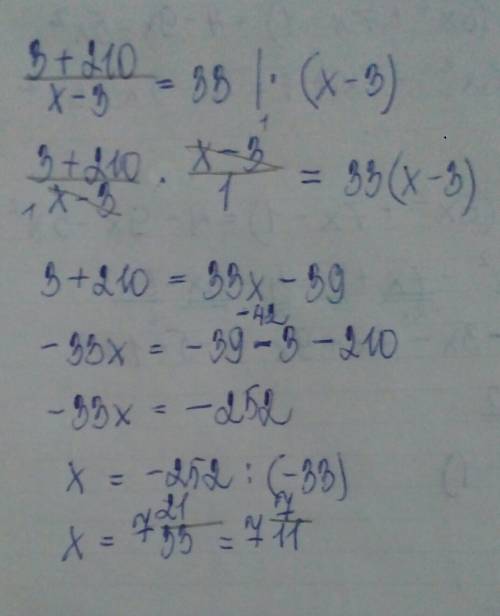 3+210/x-3 = 33 |· (x-3)
3+210/x-3 · x-3/1 = 33(x-3)
3+210 = 33x - 39
-33x = -39 - 3 - 210
-42
-33x = -252
x = -252 : (-33)
x = 7 21/33 = 7 7/11